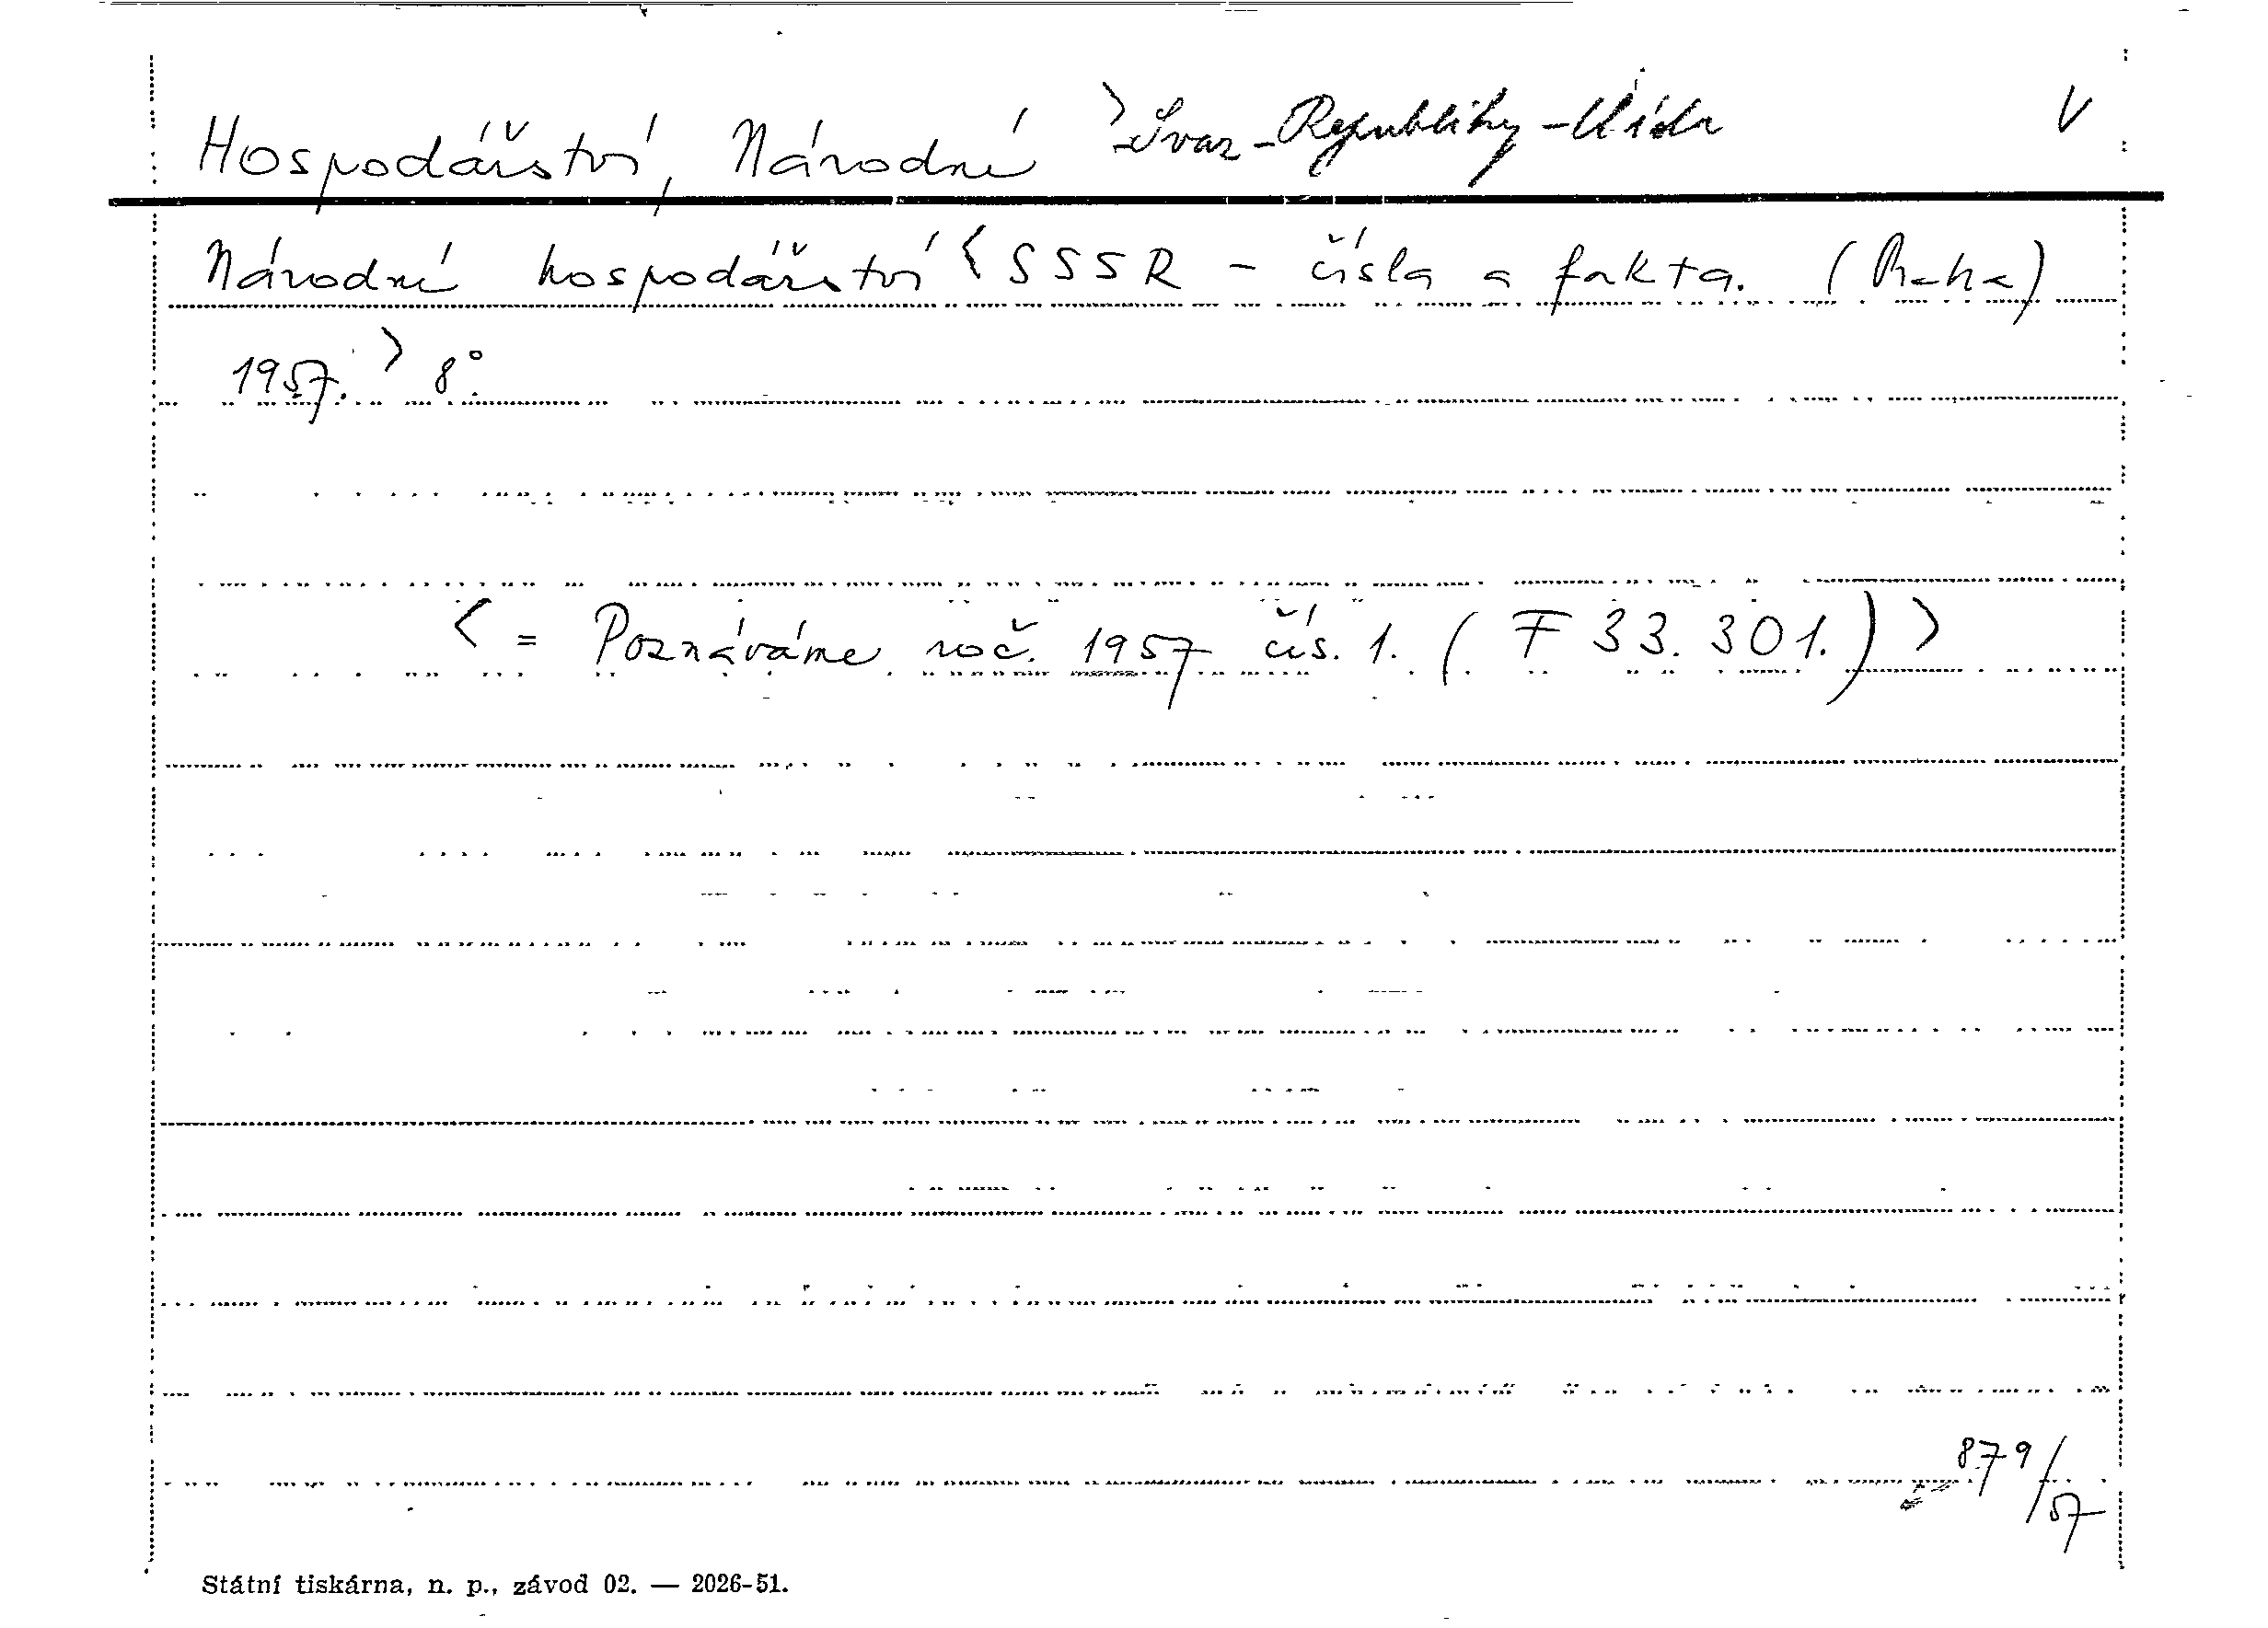 Hospodářství, Národní > -Svaz-Republiky- V
Národní hospodářství < SSSR - čísla a fakta. (Praha)
1957. > 8°.
< = Poznáváme roč. 1957 čís. 1. (F 33.301.) >
879/57
Státní tiskárna, n. p., závod 02. — 2026-51.